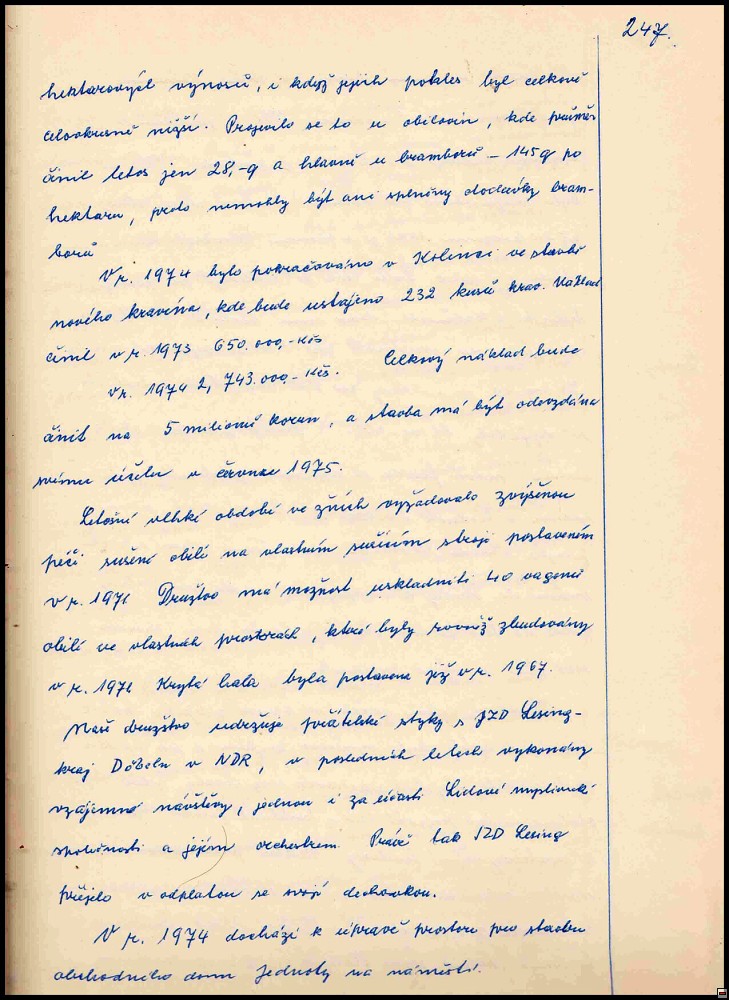 247.
hektarových výnosů, i když jejich pokles byl celkově
celookresně nižší. Projevilo se to u obilovin, kde průměr
činil letos jen 28,-q a hlavně u bramborů - 145 q po
hektaru, proto nemohly být ani splněny dodávky bram-
borů
V r. 1974 bylo pokračováno v Kolinci ve stavbě
nového kravína, kde bude ustájeno 232 kusů krav. Náklad
činil v r. 1973 650.000,- Kčs
v r. 1974 2,743.000,- Kčs. Celkový náklad bude
činit na 5 milionů korun, a stavba má být odevzdána
svému účelu v červenci 1975.
Letošní vlhké období ve žních vyžadovalo zvýšenou
péči sušení obilí na vlastním sušícím stroji postaveném
v r. 1971 Družstvo má možnost uskladniti 40 vagonů
obilí ve vlastních prostorách, které byly rovněž zbudovány
v r. 1971 Krytá hala byla postavena již v r. 1967.
Naše družstvo udržuje přátelské styky s JZD Lesing-
kraj Döbeln v NDR, v posledních letech vykonány
vzájemné návštěvy, jednou i za účasti Lidové myslivecké
společnosti a jejím orchestrem. Právě tak JZD Lesing
přijelo v odplatou se svojí dechovkou.
V r. 1974 dochází k úpravě prostoru pro stavbu
obchodního domu Jednoty na náměstí.